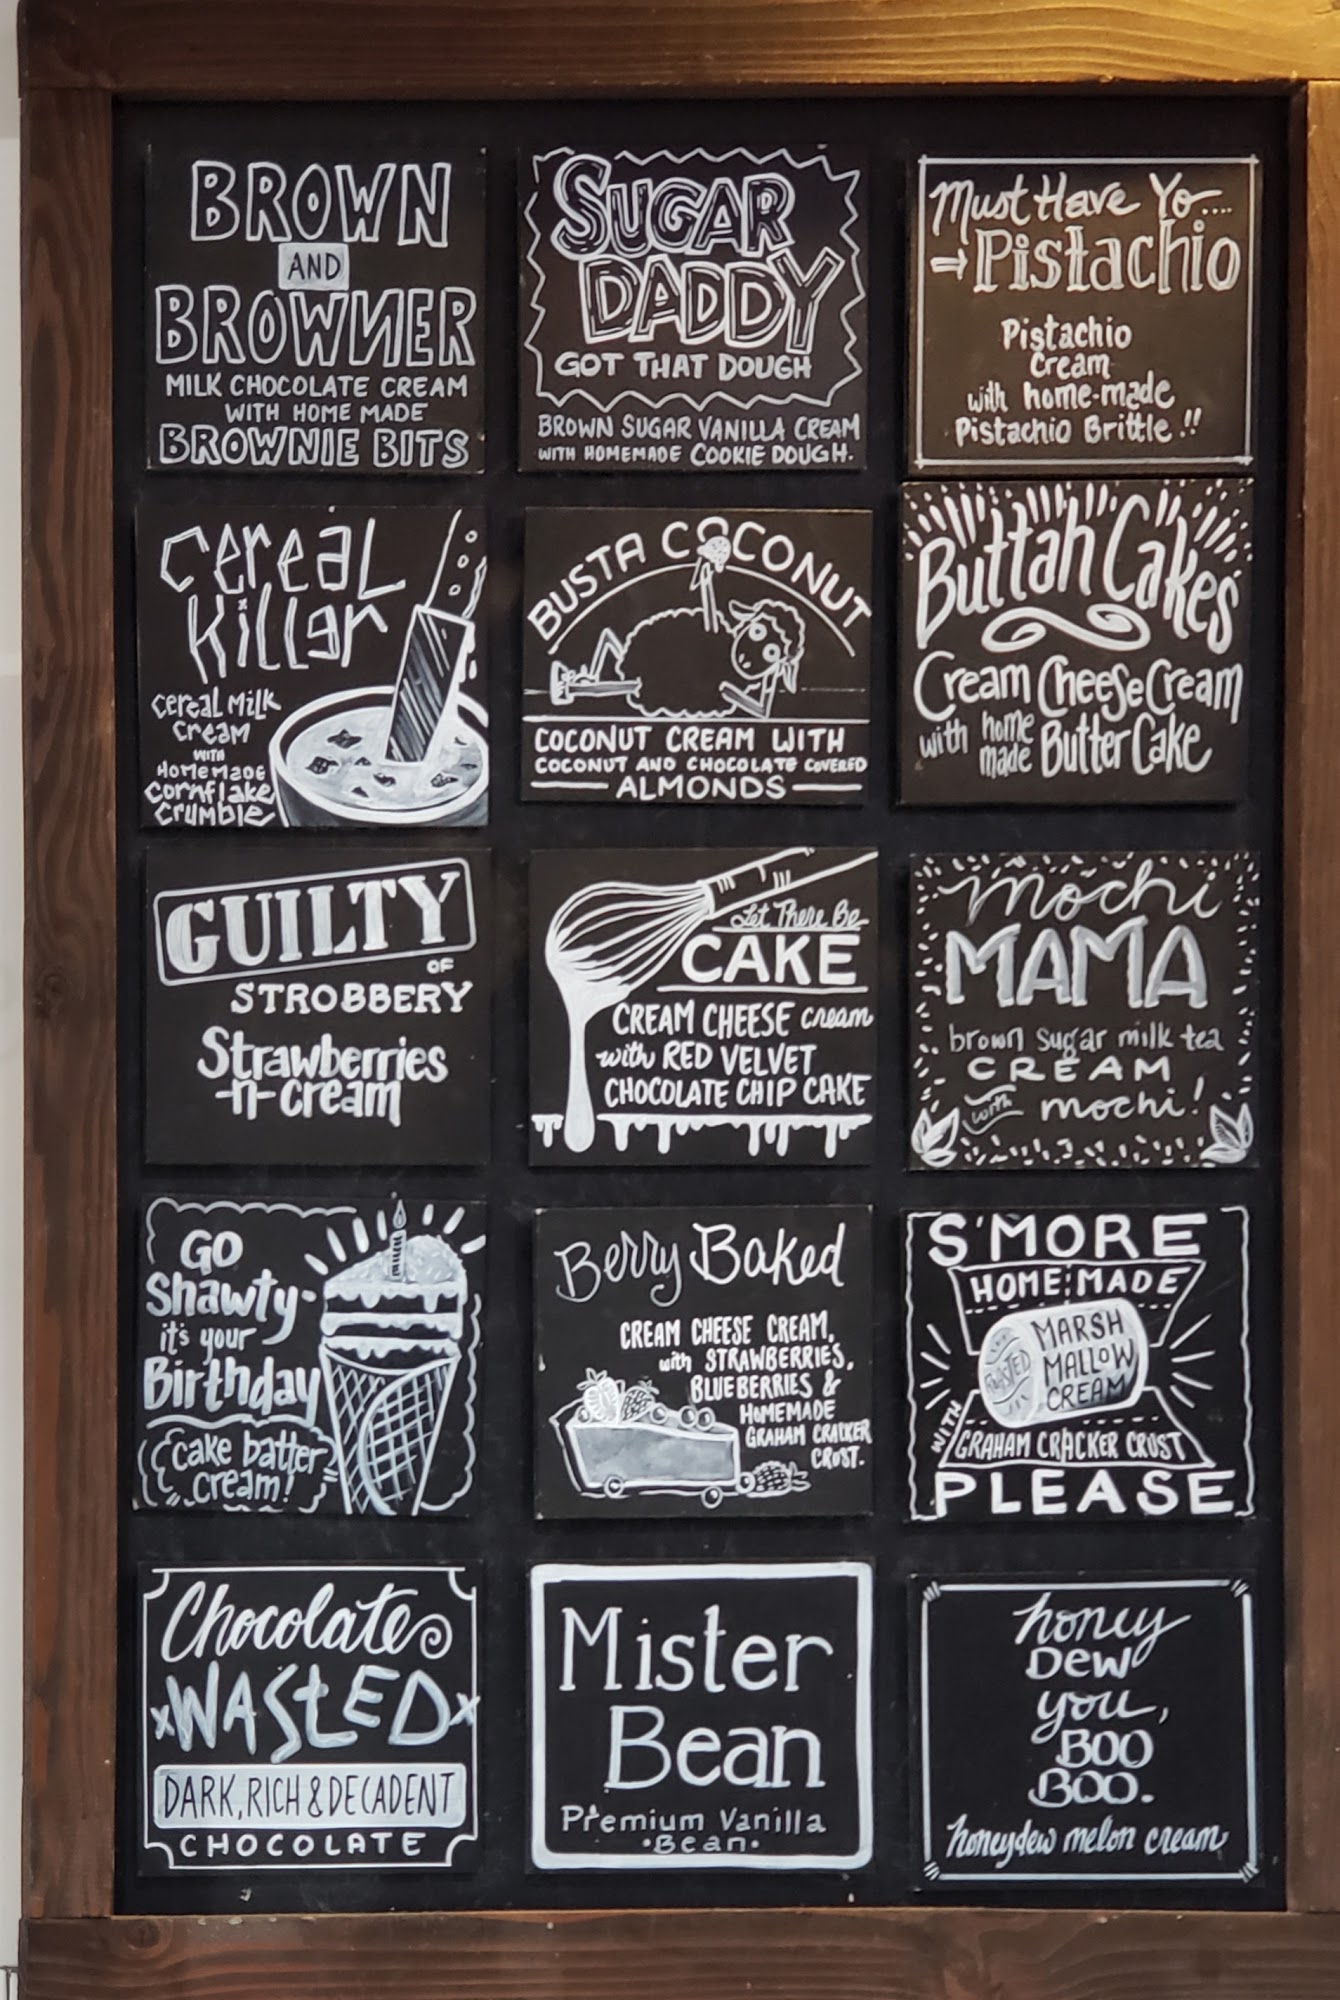 BROWN
AND
BROWNER
MILK CHOCOLATE CREAM
WITH HOME MADE
BROWNIE BITS
SUGAR
DADDY
GOT THAT DOUGH
BROWN SUGAR VANILLA CREAM
WITH HOMEMADE COOKIE DOUGH.
Must Have Yo....
→ Pistachio
Pistachio
Cream
with home-made
Pistachio Brittle!!
Cereal
Killer
Cereal Milk
Cream
WITH
Homemade
Cornflake
Crumble
BUSTA COCONUT
COCONUT CREAM WITH
COCONUT AND CHOCOLATE COVERED
ALMONDS
Buttah Cakes
Cream Cheese Cream
with home
made Butter Cake
GUILTY
OF
STROBBERY
Strawberries
-n-cream
Let There Be
CAKE
CREAM CHEESE cream
with RED VELVET
CHOCOLATE CHIP CAKE
mochi
MAMA
brown sugar milk tea
CREAM
with mochi!
GO
Shawty-
it's your
Birthday
cake batter
cream!
Berry Baked
CREAM CHEESE CREAM,
with STRAWBERRIES,
BLUEBERRIES &
HOMEMADE
GRAHAM CRACKER
CRUST.
S'MORE
HOMEMADE
ROASTED
MARSH
MALLOW
CREAM
WITH
GRAHAM CRACKER CRUST
PLEASE
Chocolate
xWASTEDx
DARK, RICH & DECADENT
CHOCOLATE
Mister
Bean
Premium Vanilla
·Bean·
honey
Dew
you,
BOO
BOO.
honeydew melon cream